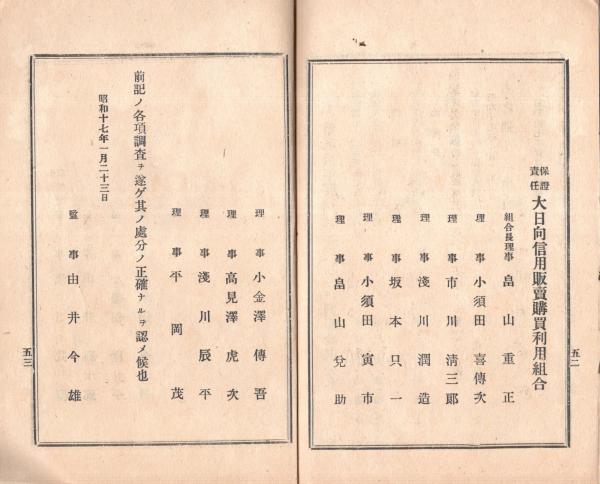 保證責任 大日向信用販賣購買利用組合
組合長理事 畠山重正
理事 小須田喜傳次
理事 市川清三郎
理事 淺川潤造
理事 坂本只一
理事 小須田寅市
理事 畠山兌助
五二
理事 小金澤傳吾
理事 高見澤虎次
理事 淺川辰平
理事 平岡茂
前記ノ各項調査ヲ遂ゲ其ノ處分ノ正確ナルヲ認メ候也
昭和十七年一月二十三日
監事 由井今雄
五三